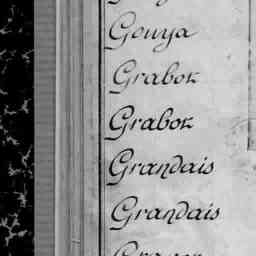 Gouya
Grabot
Grabot
Grandais
Grandais